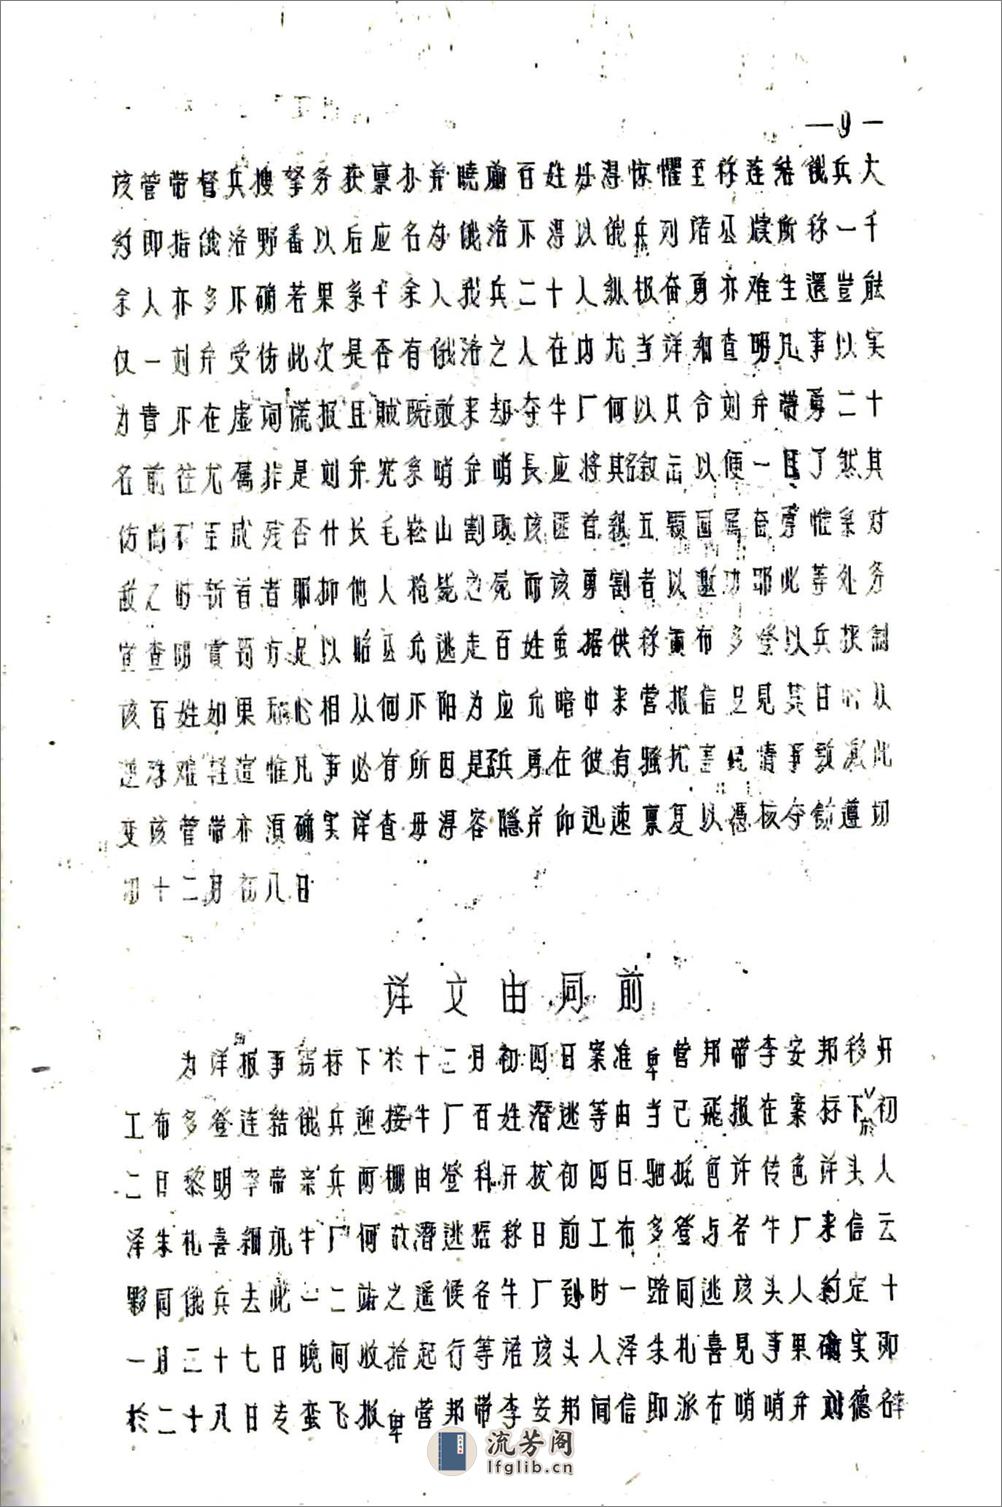 —9—
该管带督兵搜拏务获禀办并晓谕百姓毋得惊惧至称连结俄兵大
约即指俄洛野番以后应名为俄洛不得以俄兵列诸公牍所称一千
余人亦多不确若果系千余人我兵二十人纵极奋勇亦难生还岂能
仅一刘弁受伤此次是否有俄洛之人在内尤当详细查明凡事以实
为贵不在虚词谎报且贼既敢来却夺牛厂何以只令刘弁带勇二十
名前往尤属非是刘弁究系哨弁哨長应将其名叙出以便一目了然其
伤尚不至成残否什长毛崧山割取该匪首级五颗固属奋勇惟系对
敌之时斩首者耶抑他人枪毙之死而该勇割者以邀功耶此等处务
宜查明赏罚方足以昭公允逃走百姓虽据供称工布多登以兵挟制
该百姓如果无心相从何不阳为应允暗中来营报信足见其甘心从
逆殊难轻逭惟凡事必有所因是否兵勇在彼有骚扰害民情事致激此
变该管带亦须确实详查毋得容隐并仰迅速禀复以凭核夺饬遵切
切十二月初八日
详文由同前
为详报事窃标下於十二月初四日案准卑营邦带李安邦移开
工布多登连结俄兵迎接牛厂百姓潜逃等由当已飛报在案标下於初
二日黎明李带亲兵两棚由登科开拔初四日驰抵色许传色许头人
泽朱札喜细讯牛厂何故潜逃据称日前工布多登与各牛厂来信云
夥同俄兵去此一二站之遥候各牛厂到时一路同逃该头人約定十
一月二十七日晚间收拾起行等语该头人泽朱札喜見事果确实即
於二十八日专蛮飞报卑营邦带李安邦闻信即派右哨哨弁刘德名率
流芳阁
lfglib.cn